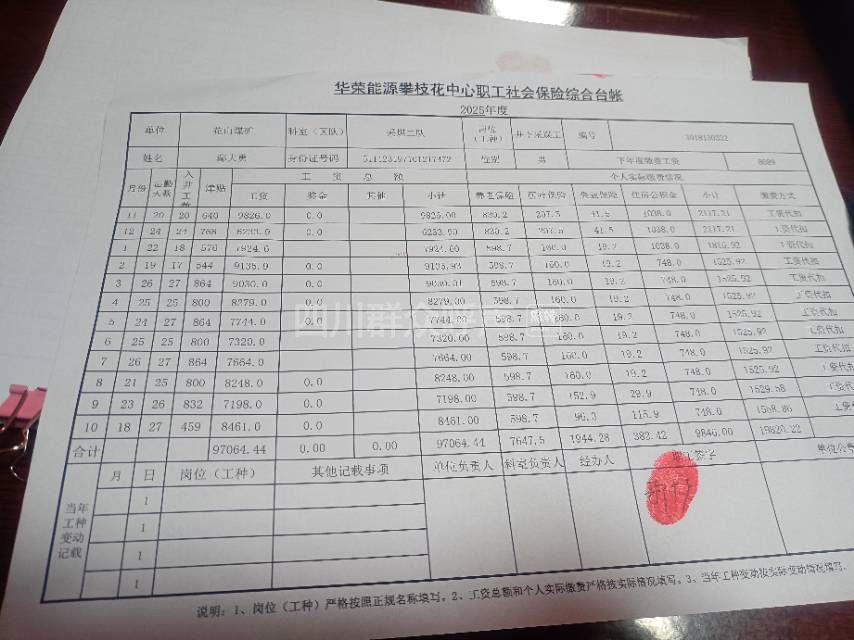 华荣能源攀枝花中心职工社会保险综合台帐
2025年度
单位 花山煤矿 科室（区队） 采煤二队 岗位（工种） 井下采煤工 编号
姓名 身份证号码 性别 男 下年度缴费工资
月份 出勤天数 入井工数 津贴 工资总额 个人实际缴费情况
工资 奖金 其他 小计 养老保险 医疗保险 失业保险 住房公积金 小计 缴费方式
11 20 20 640 9826.0 0.0 9826.00 820.2 207.5 41.5 1038.0 2117.21 工资代扣
12 24 24 768 6253.0 0.0 6253.00 820.2 207.5 41.5 1038.0 2117.21 工资代扣
1 22 18 576 7924.6 0.0 7924.60 598.7 160.0 19.2 1038.0 1815.92 工资代扣
2 19 17 544 9135.9 0.0 9135.92 598.7 160.0 19.2 748.0 1525.92 工资代扣
3 26 27 864 9030.0 0.0 9030.01 598.7 160.0 19.2 748.0 1525.92 工资代扣
4 25 25 800 8279.0 0.0 8279.00 598.7 160.0 19.2 748.0 1525.92 工资代扣
5 24 27 864 7744.0 0.0 7744.00 598.7 160.0 19.2 748.0 1525.92 工资代扣
6 25 25 800 7320.0 7320.00 598.7 160.0 19.2 748.0 1525.92 工资代扣
7 26 27 864 7664.0 7664.00 598.7 160.0 19.2 748.0 1525.92 工资代扣
8 21 25 800 8248.0 0.0 8248.00 598.7 160.0 19.2 748.0 1525.92 工资代扣
9 23 26 832 7198.0 0.0 7198.00 598.7 152.9 29.9 748.0 1529.58 工资代扣
10 18 27 459 8461.0 0.0 8461.00 598.7 96.3 115.9 748.0 1558.86 工资代扣
合计 97064.44 0.00 0.00 97064.44 7647.5 1944.28 383.42 9846.00 19820.22
当年工种变动记载 月 日 岗位（工种） 其他记载事项 单位负责人 科室负责人 经办人 职工签字 单位公章
1
1
1
1
说明：1、岗位（工种）严格按照正规名称填写。2、工资总额和个人实际缴费严格按实际情况填写。3、当年工种变动按实际变动情况填写。